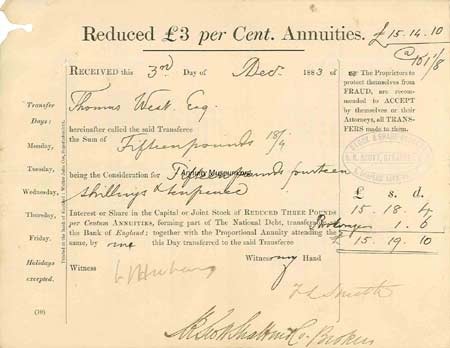 Reduced £3 per Cent. Annuities.
£15.14.10
@ 101 1/8
RECEIVED this 3rd Day of Decr. 1883 of
Thomas West Esq.
hereinafter called the said Transferee
the Sum of Fifteen pounds 18/4
being the Consideration for Fifteen pounds fourteen
shillings & tenpence
Interest or Share in the Capital or Joint Stock of REDUCED THREE POUNDS
per Centum ANNUITIES, forming part of The National Debt, transferable at
the Bank of England; together with the Proportional Annuity attending the
same, by me this Day transferred to the said Transferee
Witness my Hand
Witness
Brokers
Transfer
Days:
Monday,
Tuesday,
Wednesday,
Thursday,
Friday.
Holidays
excepted.
The Proprietors to
protect themselves from
FRAUD, are recom-
mended to ACCEPT
by themselves or their
Attorneys, all TRANS-
FERS made to them.
£ s. d.
15. 18. 4
1. 6
£ 15. 19. 10